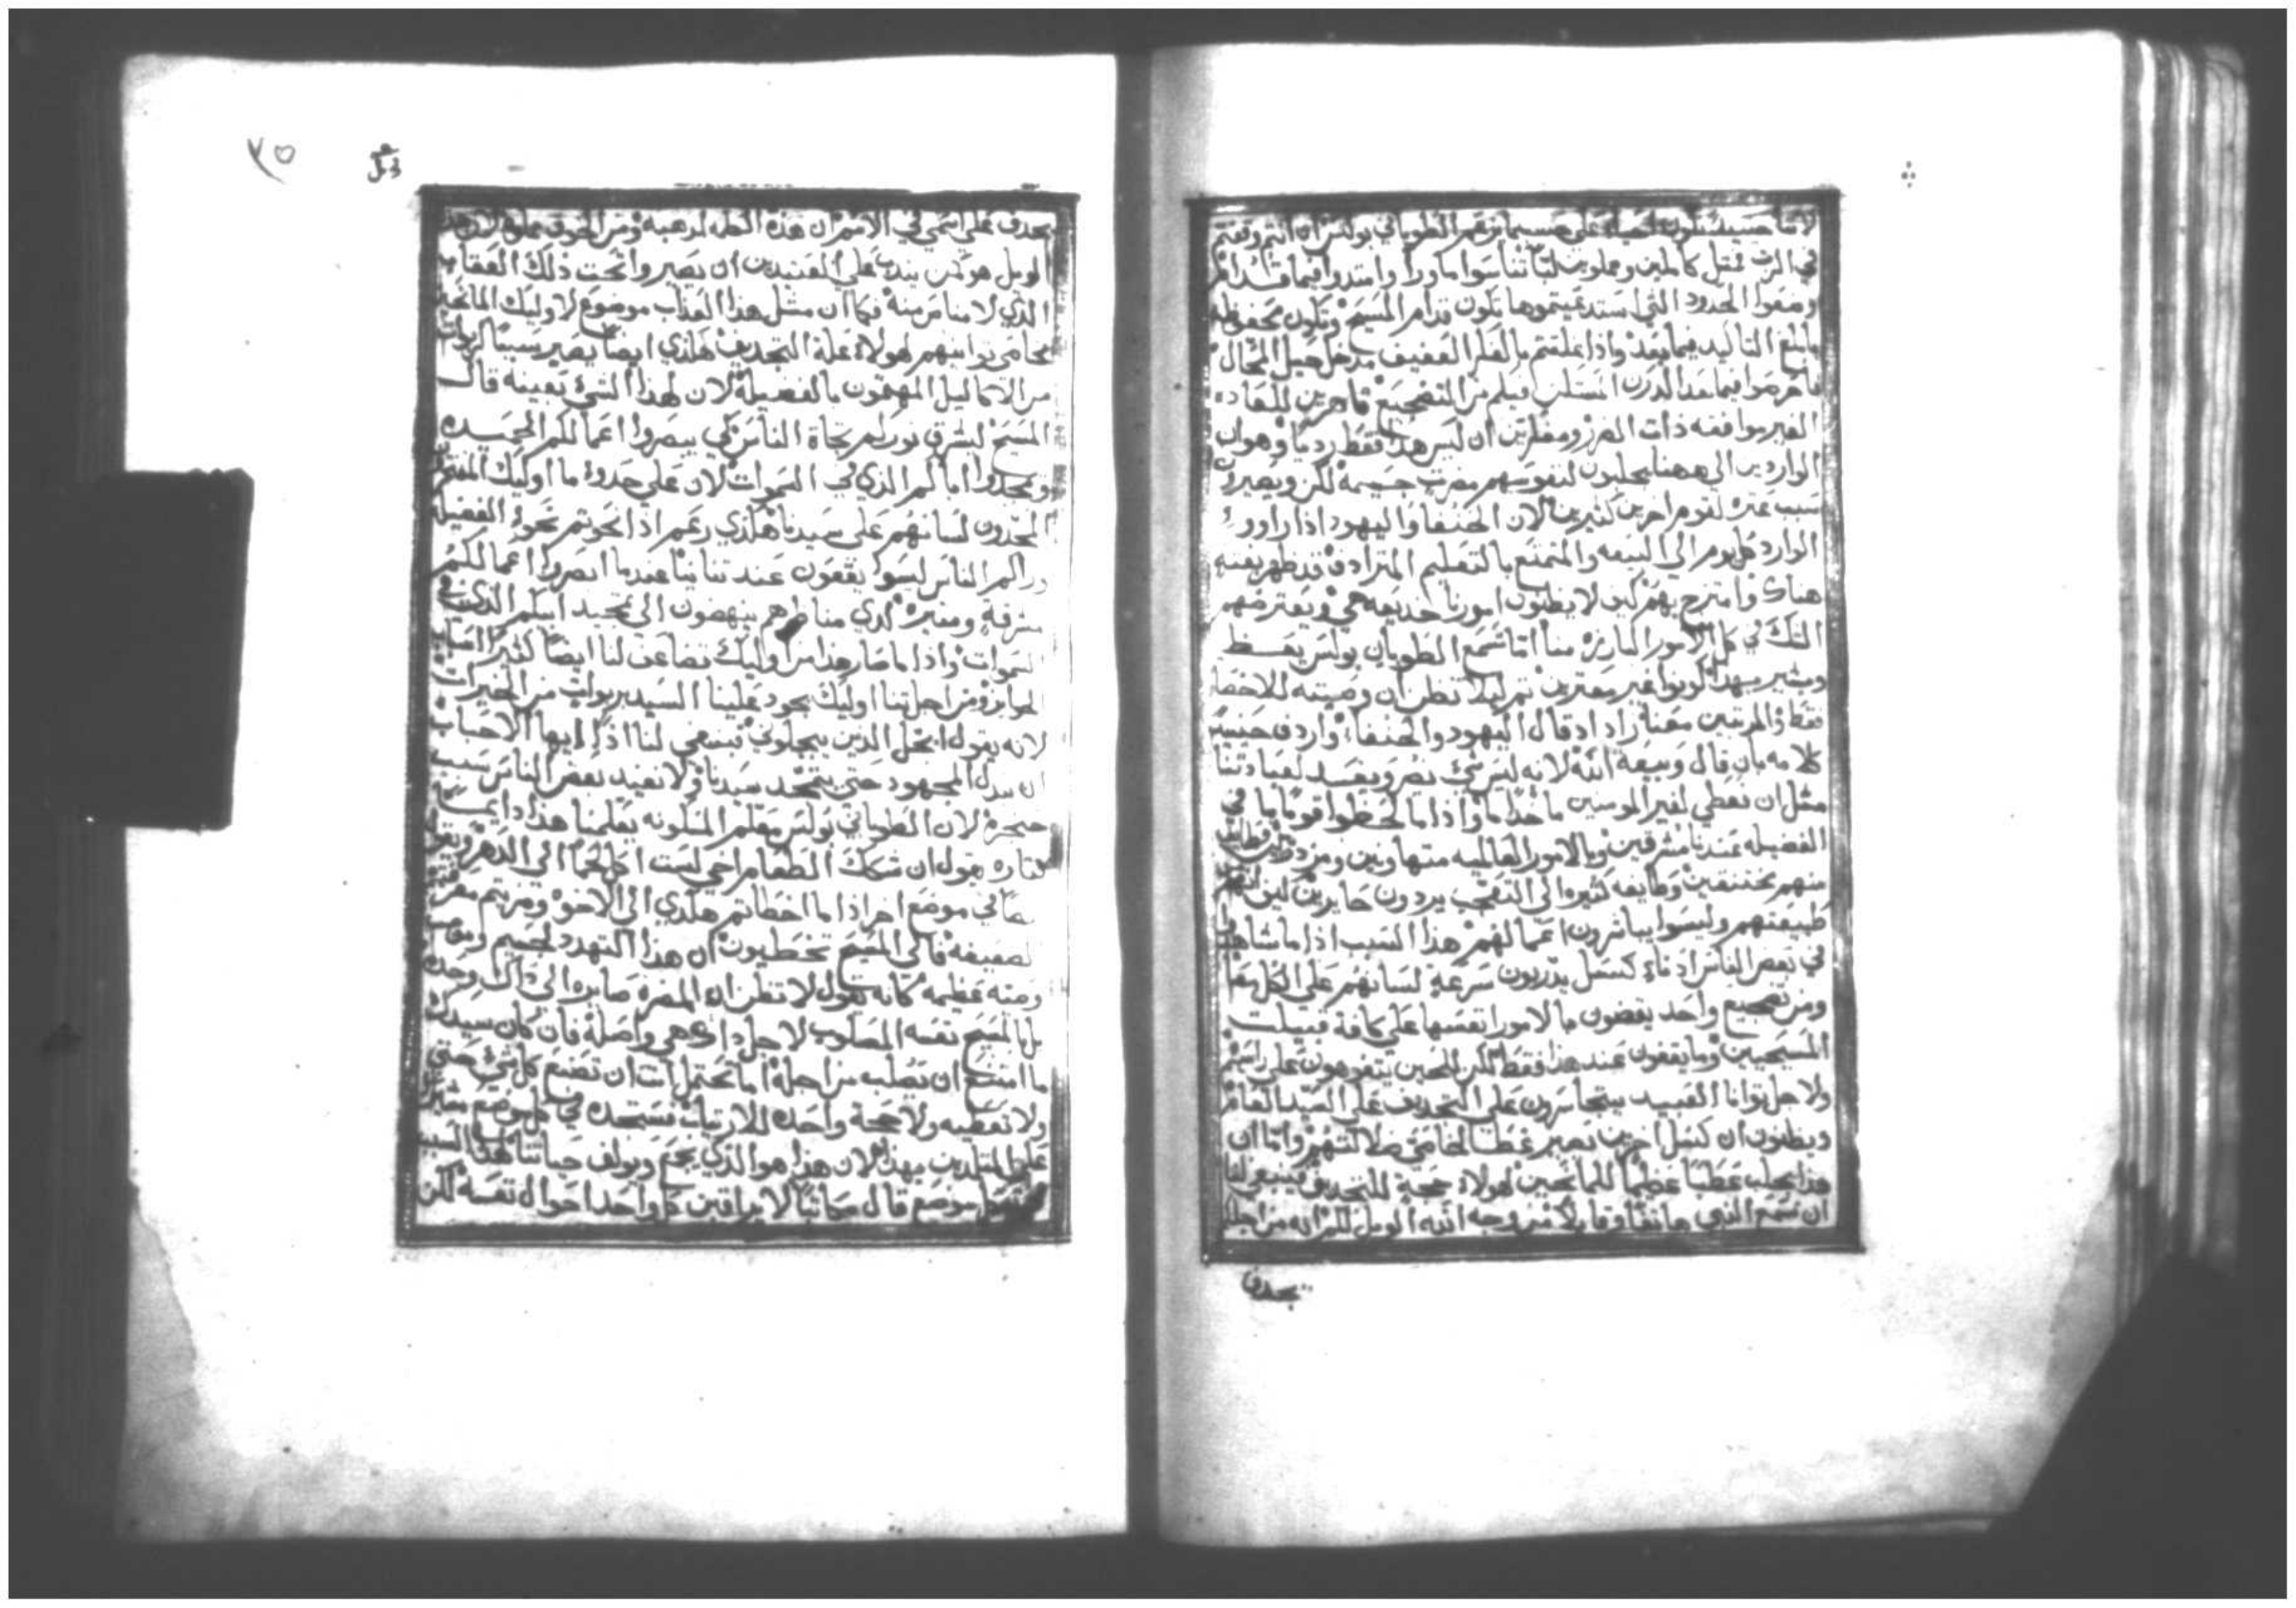 لاننا حينيد نكون احياء على حسبما زعم الطوباني بولس ان انتم وقفتم
في الرب فمثل كاملين ومملوين لبًا تناسوا ما ورا وامتدوا فيما قدام
وضعوا الحدود التي استدعيتموها تكون قدام المسيح وتكون محفوظه
بابلغ التاكيد فيما بعد واذا علمتم بالعلم العفيف مدخل حيل المحال
فاحرصوا فيما بعد
الغير موافقه ذات الضرر ومفكرين ان ليس هذا فقط رديًا وهو ان
الواردين الى ههنا يجلبون لنفوسهم مضرت جسيمه لكن ويصيرون
سبب عثره لقوم اخرين كثيرين لان الحنفا واليهود اذا راوو
الوارد كل يوم الى البيعه والمتمتع بالتعليم المترادف قد ظهر بغته
هناك وامتزج بهم كيف لا يظنون امورنا خديعه هي ويعترضهم
الشك في كل الامور البارزه منا اما تسمع الطوباني بولس يعظ
ويشير بهذا كونوا غير معثرين ثم ليلا تظن ان وصيته للاخصا
فقط والمرتبين معنا زاد اذ قال اليهود والحنفاء واردف حينيد
كلامه بان قال وبيعة الله لانه ليس شي يضر ويفسد لعبادتنا
مثل ان نعطي لغير المومنين ماخذًا ما واذا ما لحظوا قومًا ما في
الفضيله عندنا مشرقين وبالامور العالميه متهاونين ومزدرين فطايفه
منهم يختنقين وطايفه كثيره الى التعجب يردون حايرين كيف انهم
طبيعتهم وليسوا يباشرون اعمالهم هذا السبب اذا ما شاهدوا
في بعض الناس ادناء كسل يدربون سرعة لسانهم على الكل معًا
ومن تضجيع واحد يقضون بالامور نفسها على كافة قبيلت
المسيحيين وما يقفون عند هذا فقط لكن للحين يتفوهون على راسهم
ولاجل توانا العبيد يتجاسرون على التجديف على السيد العام
ويظنون ان كسل اخرين تصير غطا لخاصي ضلالتهم واما ان
هذا يجلب عطبًا عظيمًا للمانحين لهولاء حجة للتجديف فينبغي لنا
ان نسمع النبي هاتفًا وقايلا من وجه الله الويل لكم انه من اجلكم
يجدف
٧٥
يجدف على اسمي في الامم ان هذه الكلمه لرعبه ومن الخوف مملوه لان هذا
الويل هو كمن يندب على العتيدين ان يصيروا تحت ذلك العقاب
الذي لا مناص منه فكما ان مثل هذا العذاب موضوع لاوليك المانحين
بخاصي توانيهم لهولاء علة التجديف هكذي ايضا يصير سببًا لربوات
من الاكاليل المهتمون بالفضيله لان لهذا الشي بعينه قال
المسيح ليشرق نوركم تجاة الناس كي يبصروا اعمالكم الجيده
ويمجدوا اباكم الذي في السموات لان على حدو ما اوليك
يحدون لسانهم على سيدنا هكذي زعم اذا نحوتم نحو الفضيله
وراكم الناس ليسوا يقفون عند ثنائنا عندما ابصروا اعمالكم
مشرقة ومنيره لدي مناظرهم ينهضون الى تمجيد ابيكم الذي في
السموات واذا ما صار هذا من اوليك تضاعف لنا ايضًا كثيرًا اصناف
الجوايز ومن اجل ثنا اوليك يجود علينا السيد بربوات من الخيرات
لانه يقول ابجل الذين يبجلوني فينبغي لنا اذًا ايها الاحباب
ان نبدل المجهود حتى يتمجد سيدنا ولا نفيد بعض الناس سبب
حنجرة لان الطوباني بولس معلم المسكونه يعلمنا هذا دايمًا
فتاره يقول ان شكك الطعام اخي لست اكل لحمًا الى الدهر ويقول
ايضًا في موضع اخر اذا ما اخطاتم هكذي الى الاخوة وضربتم معرفتهم
الضعيفة فالى المسيح تخطيون ان هذا التهدد لجسيم
ومنه عظيمه كانه يقول لا تظن ان المضره صايره الى ذاك وحده
بل بالمسيح نفسه المصلوب لاجل ذاك هي واصلة فان كان سيدك
ما امتنع ان يصلب من اجله اما تحتمل انت ان تصنع كل شي حتى
ولا تعطيه ولا حجة واحده للارتياب نستجده في كل موضع مشيرًا
على المتلمدين بهذا لان هذا هو الذي يجمع ويولف حياتنا هذا السبب
موضع قال مكاتبًا لا يراقبن كل واحد احوال نفسه لكن